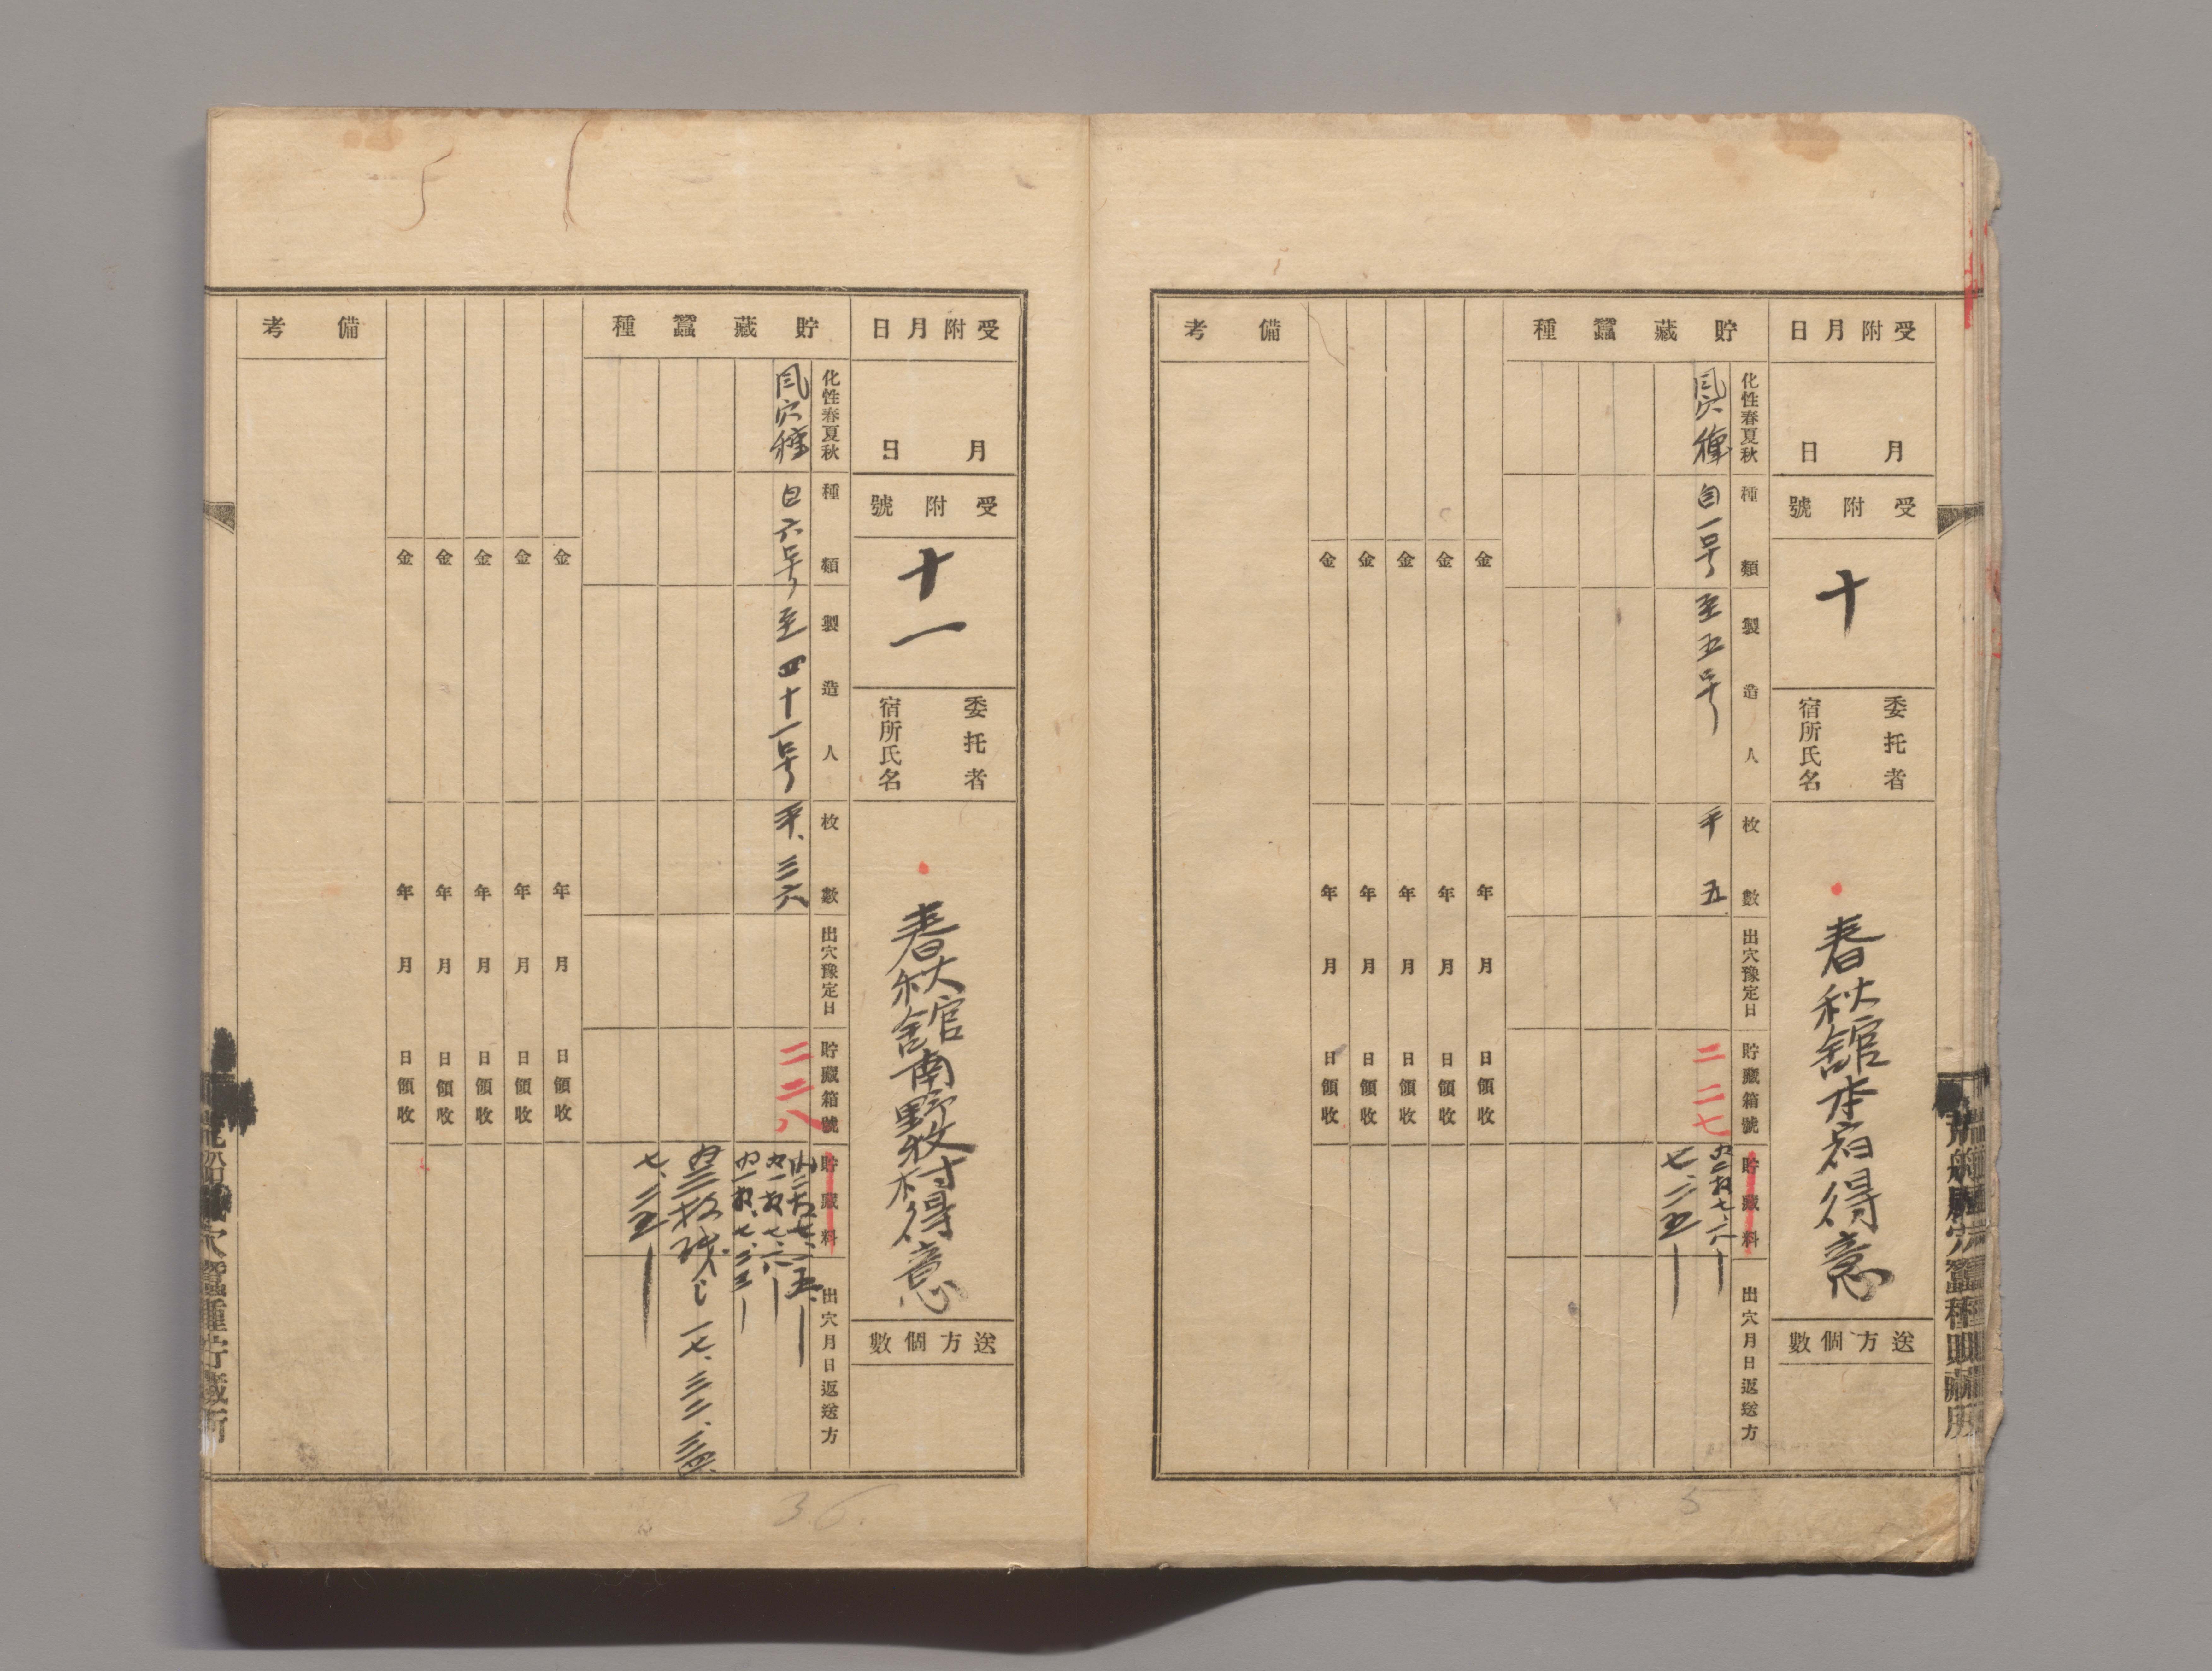 受附月日
月
日
受附號
十
委托者
宿所氏名
春秋舘本宿得意
送方個數
貯藏蠶種
化性春夏秋
種類
製造人
枚數
出穴豫定日
貯藏箱號
貯藏料
出穴月日返送方
風穴種
自一号
至五号
平
五
二二七
内二枚七、六
七、二五
金
年
月
日領收
金
年
月
日領收
金
年
月
日領收
金
年
月
日領收
金
年
月
日領收
備考
5
受附月日
月
日
受附號
十一
委托者
宿所氏名
春秋舘南野牧村得意
送方個數
貯藏蠶種
化性春夏秋
種類
製造人
枚數
出穴豫定日
貯藏箱號
貯藏料
出穴月日返送方
風穴種
自六号
至四十一号
平、三六
二二八
七、二五
金
年
月
日領收
金
年
月
日領收
金
年
月
日領收
金
年
月
日領收
金
年
月
日領收
備考
穴蠶種貯藏所
36.